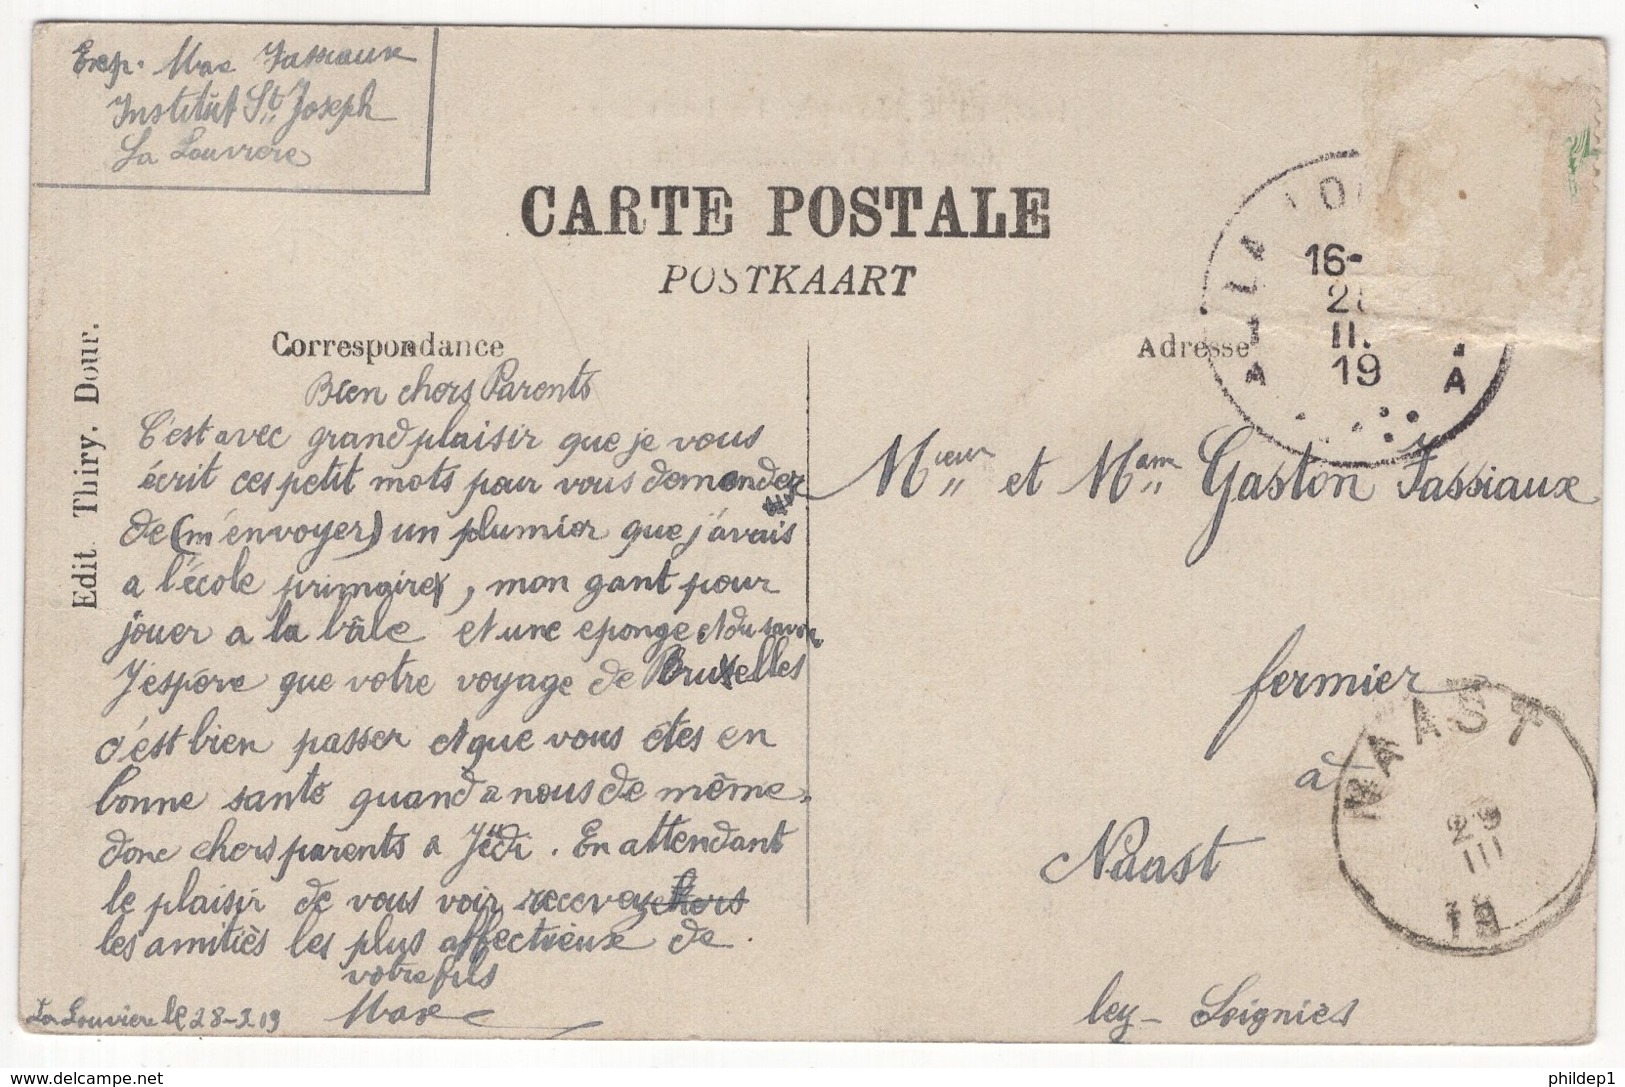 Exp. Max Fassiaux
Institut St. Joseph
La Louviere
CARTE POSTALE
POSTKAART
Edit. Thiry. Dour.
Correspondance
Adresse
LA LO
16-
2
III
19
A
A
Bien chers Parents
C'est avec grand plaisir que je vous
écrit ces petit mots pour vous demander
de (m'envoyer) un plumier que j'avais
a l'école primaire, mon gant pour
jouer a la bâle et une eponge et du savon
J'espére que votre voyage de Bruxelles
c'est bien passer et que vous étes en
bonne santé quand a nous de même.
donc chers parents a Jedi. En attendant
le plaisir de vous voir recevez chers
les amitiès les plus affectueux de.
votre fils
Max
La Louviere le 28-3.19
Mieur et Mam Gaston Fassiaux
fermier
à
Naast
lez-Soigniès
NAAST
29
III
19
phildep1
www.delcampe.net